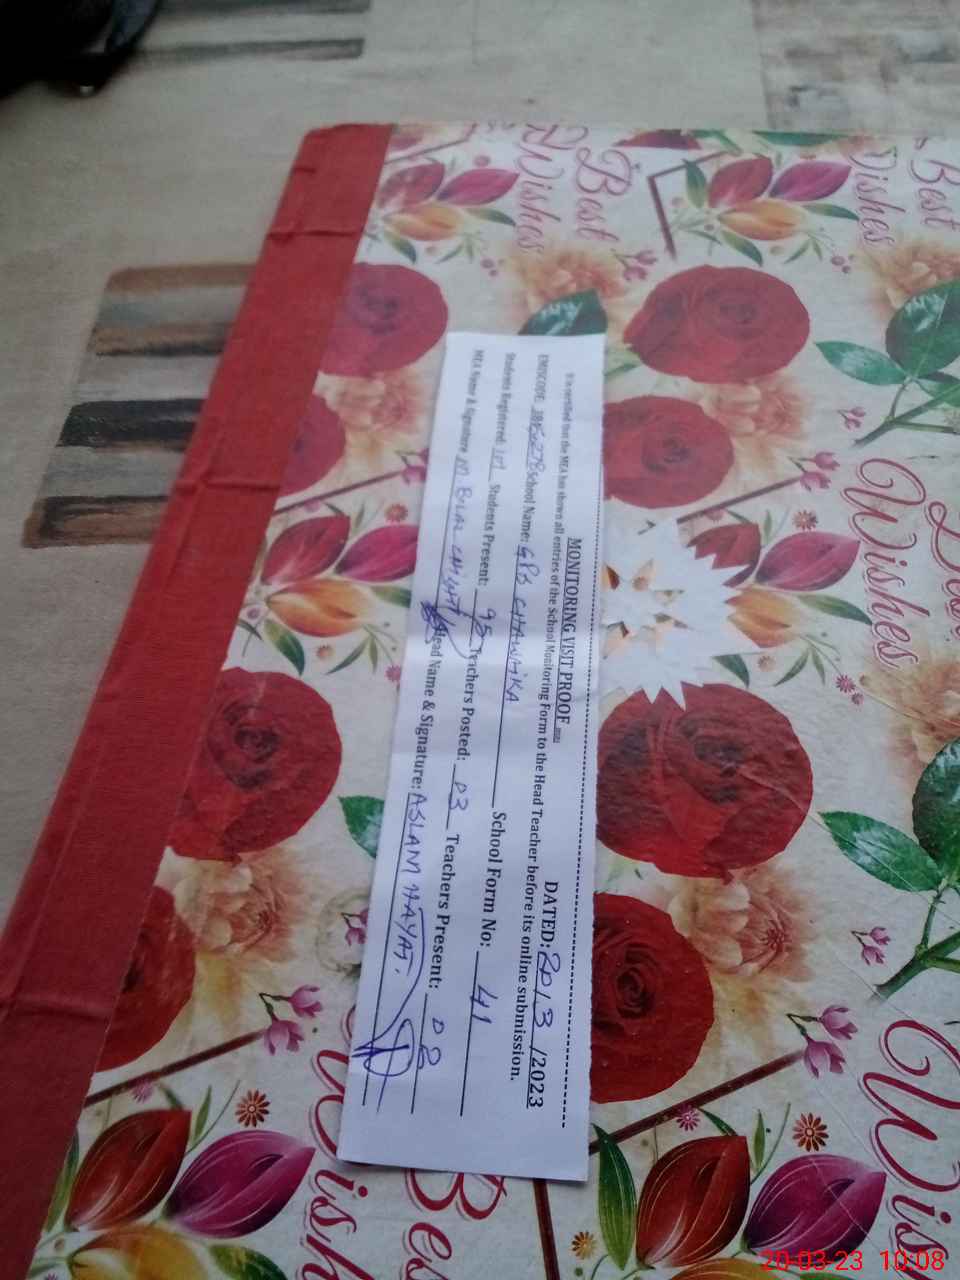 MONITORING VISIT PROOF DATED: 20/3/2023
It is certified that the MEA has shown all entries of the School Monitoring Form to the Head Teacher before its online submission.
EMISCODE: School Name: GPS CHAWHKA School Form No: 41
Students Registered: Students Present: 95 Teachers Posted: 03 Teachers Present: 02
MEA Name & Signature M BILAL Head Name & Signature: ASLAM HAYAT.
Best Wishes
Best Wishes
Wishes
Wishes
Best
20-03-23 10:08